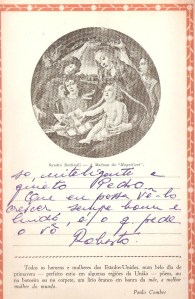 Sandro Botticelli — A Madona do "Magnificat"
so, inteligente e
quieto Pedro.
Que eu possa vê-lo
crescer sempre bom e
lindo, é o q. pede
o vô
Roberto.
Todos os homens e mulheres dos Estados-Unidos, num belo dia de
primavera — perfeito eeo em algumas regiões da União — põem, ou
na botoeira ou no corpete, um lírio branco em honra da mãe, a melhor
mulher do mundo.
Paulo Combes